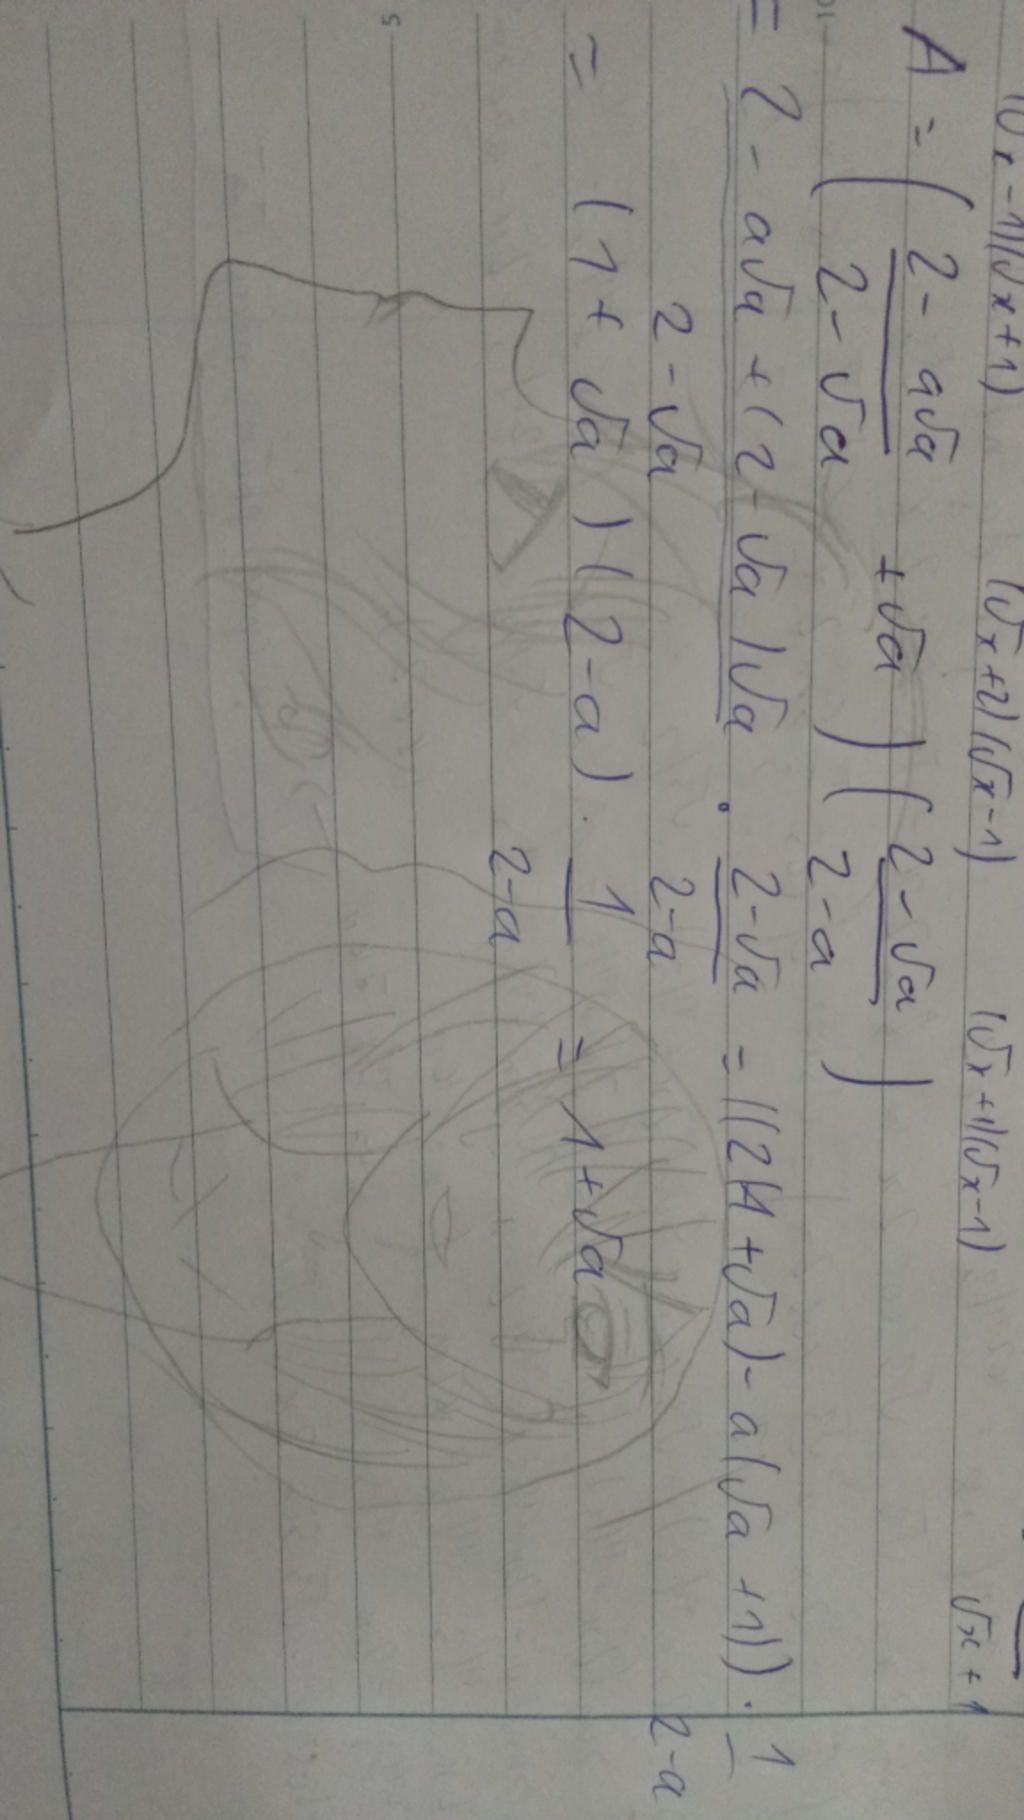 (√x-1)(√x+1) (√x+2)(√x-1) (√x+1)(√x-1) √x+1
10
A = ( 2-a√a + √a ) ( 2-√a )
2-√a 2-a
= 2-a√a+(2-√a)√a . 2-√a = ((2(1+√a)-a(√a+1)) . 1
2-√a 2-a 2-a
= (1+√a)(2-a) . 1 = 1+√a
2-a
5